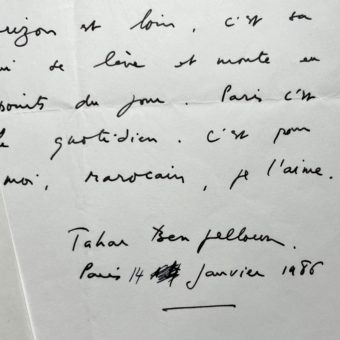 rizon est loin, c'est sa
ui se lève et monte en
points du jour. Paris c'est
le quotidien. C'est pour
moi, marocain, je l'aime.
Tahar Ben Jelloun.
Paris 14 Janvier 1986